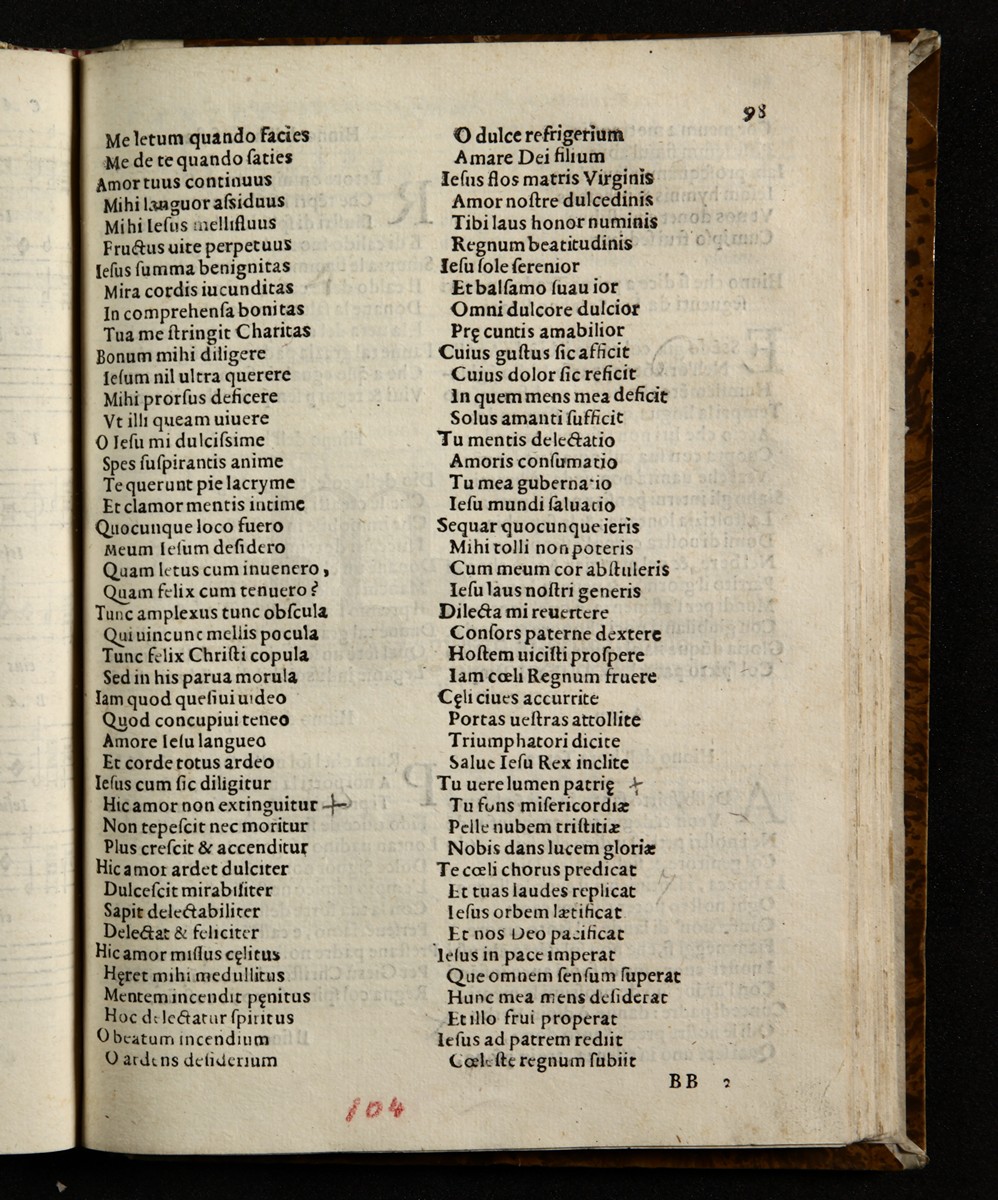 98
Me letum quando facies
Me de te quando ſaties
Amor tuus continuus
Mihi languor aſsiduus
Mihi Ieſus mellifluus
Fructus uite perpetuus
Ieſus ſumma benignitas
Mira cordis iucunditas
In comprehenſa bonitas
Tua me ſtringit Charitas
Bonum mihi diligere
Ieſum nil ultra querere
Mihi prorſus deficere
Vt illi queam uiuere
O Ieſu mi dulciſsime
Spes ſuſpirantis anime
Te querunt pie lacryme
Et clamor mentis intime
Quocunque loco fuero
Meum Ieſum deſidero
Quam letus cum inuenero,
Quam felix cum tenuero?
Tunc amplexus tunc obſcula
Qui uincunt mellis pocula
Tunc felix Chriſti copula
Sed in his parua morula
Iam quod queſiui uideo
Quod concupiui teneo
Amore Ieſu langueo
Et corde totus ardeo
Ieſus cum ſic diligitur
Hic amor non extinguitur
Non tepeſcit nec moritur
Plus creſcit & accenditur
Hic amor ardet dulciter
Dulceſcit mirabiliter
Sapit delectabiliter
Delectat & feliciter
Hic amor miſſus cęlitus
Hęret mihi medullitus
Mentem incendit pęnitus
Hoc delectatur ſpiritus
O beatum incendium
O ardens deſiderium
O dulce refrigerium
Amare Dei filium
Ieſus flos matris Virginis
Amor noſtre dulcedinis
Tibi laus honor numinis
Regnum beatitudinis
Ieſu ſole ſerenior
Et balſamo ſuau ior
Omni dulcore dulcior
Prę cuntis amabilior
Cuius guſtus ſic afficit
Cuius dolor ſic reficit
In quem mens mea deficit
Solus amanti ſufficit
Tu mentis delectatio
Amoris conſumatio
Tu mea gubernatio
Ieſu mundi ſaluatio
Sequar quocunque ieris
Mihi tolli non poteris
Cum meum cor abſtuleris
Ieſu laus noſtri generis
Dilecta mi reuertere
Conſors paterne dextere
Hoſtem uiciſti proſpere
Iam cœli Regnum fruere
Cęli ciues accurrite
Portas ueſtras attollite
Triumphatori dicite
Salue Ieſu Rex inclite
Tu uere lumen patrię
Tu fons miſericordiæ
Pelle nubem triſtitiæ
Nobis dans lucem gloriæ
Te cœli chorus predicat
Et tuas laudes replicat
Ieſus orbem lætificat
Et nos Deo pacificat
Ieſus in pace imperat
Que omnem ſenſum ſuperat
Hunc mea mens deſiderat
Et illo frui properat
Ieſus ad patrem rediit
Cœleſte regnum ſubiit
BB 2
104